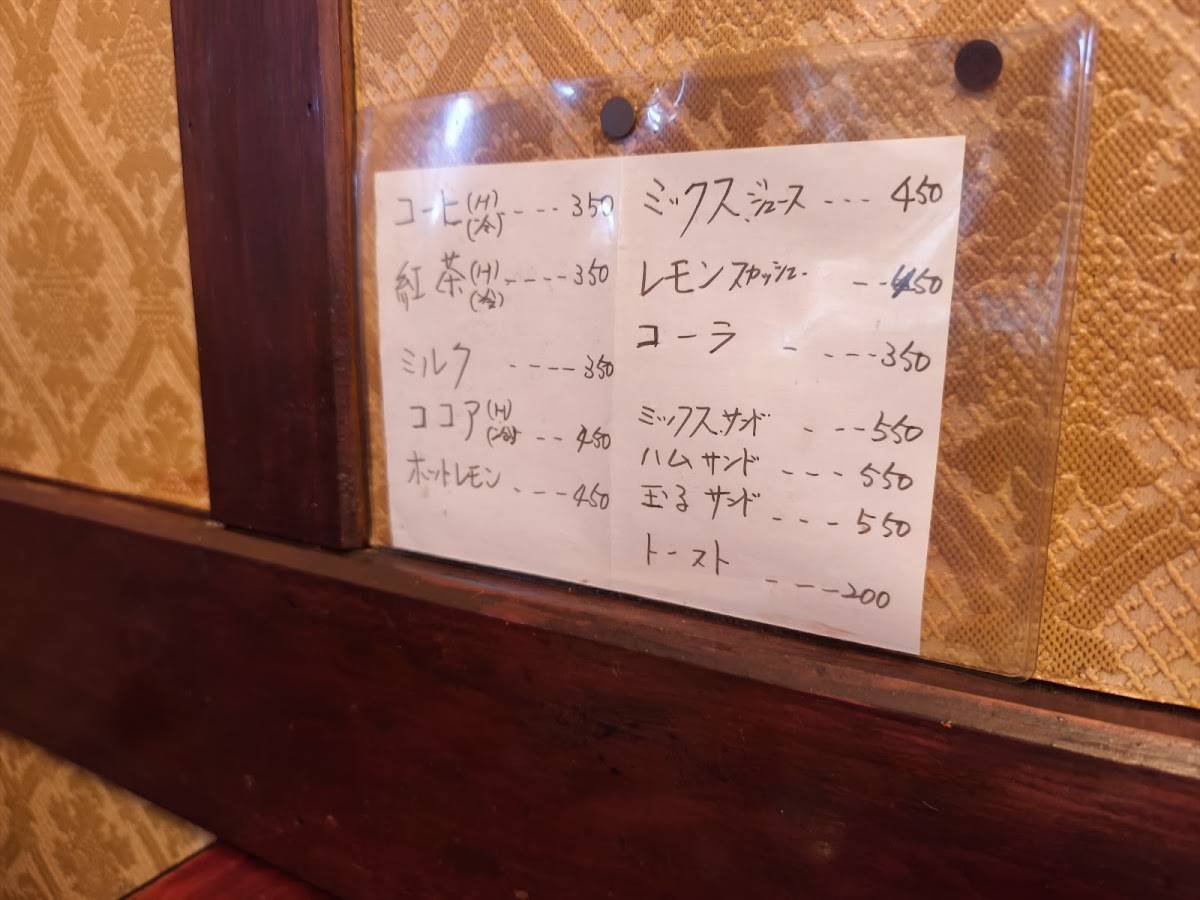 コーヒ(H)(冷)----350
紅茶(H)(冷)----350
ミルク ----350
ココア(H)(冷)--450
ホットレモン ----450
ミックスジュース ---450
レモンスカッシュ --450
コーラ ----350
ミックスサンド ---550
ハムサンド ---550
玉子サンド ---550
トースト ---200